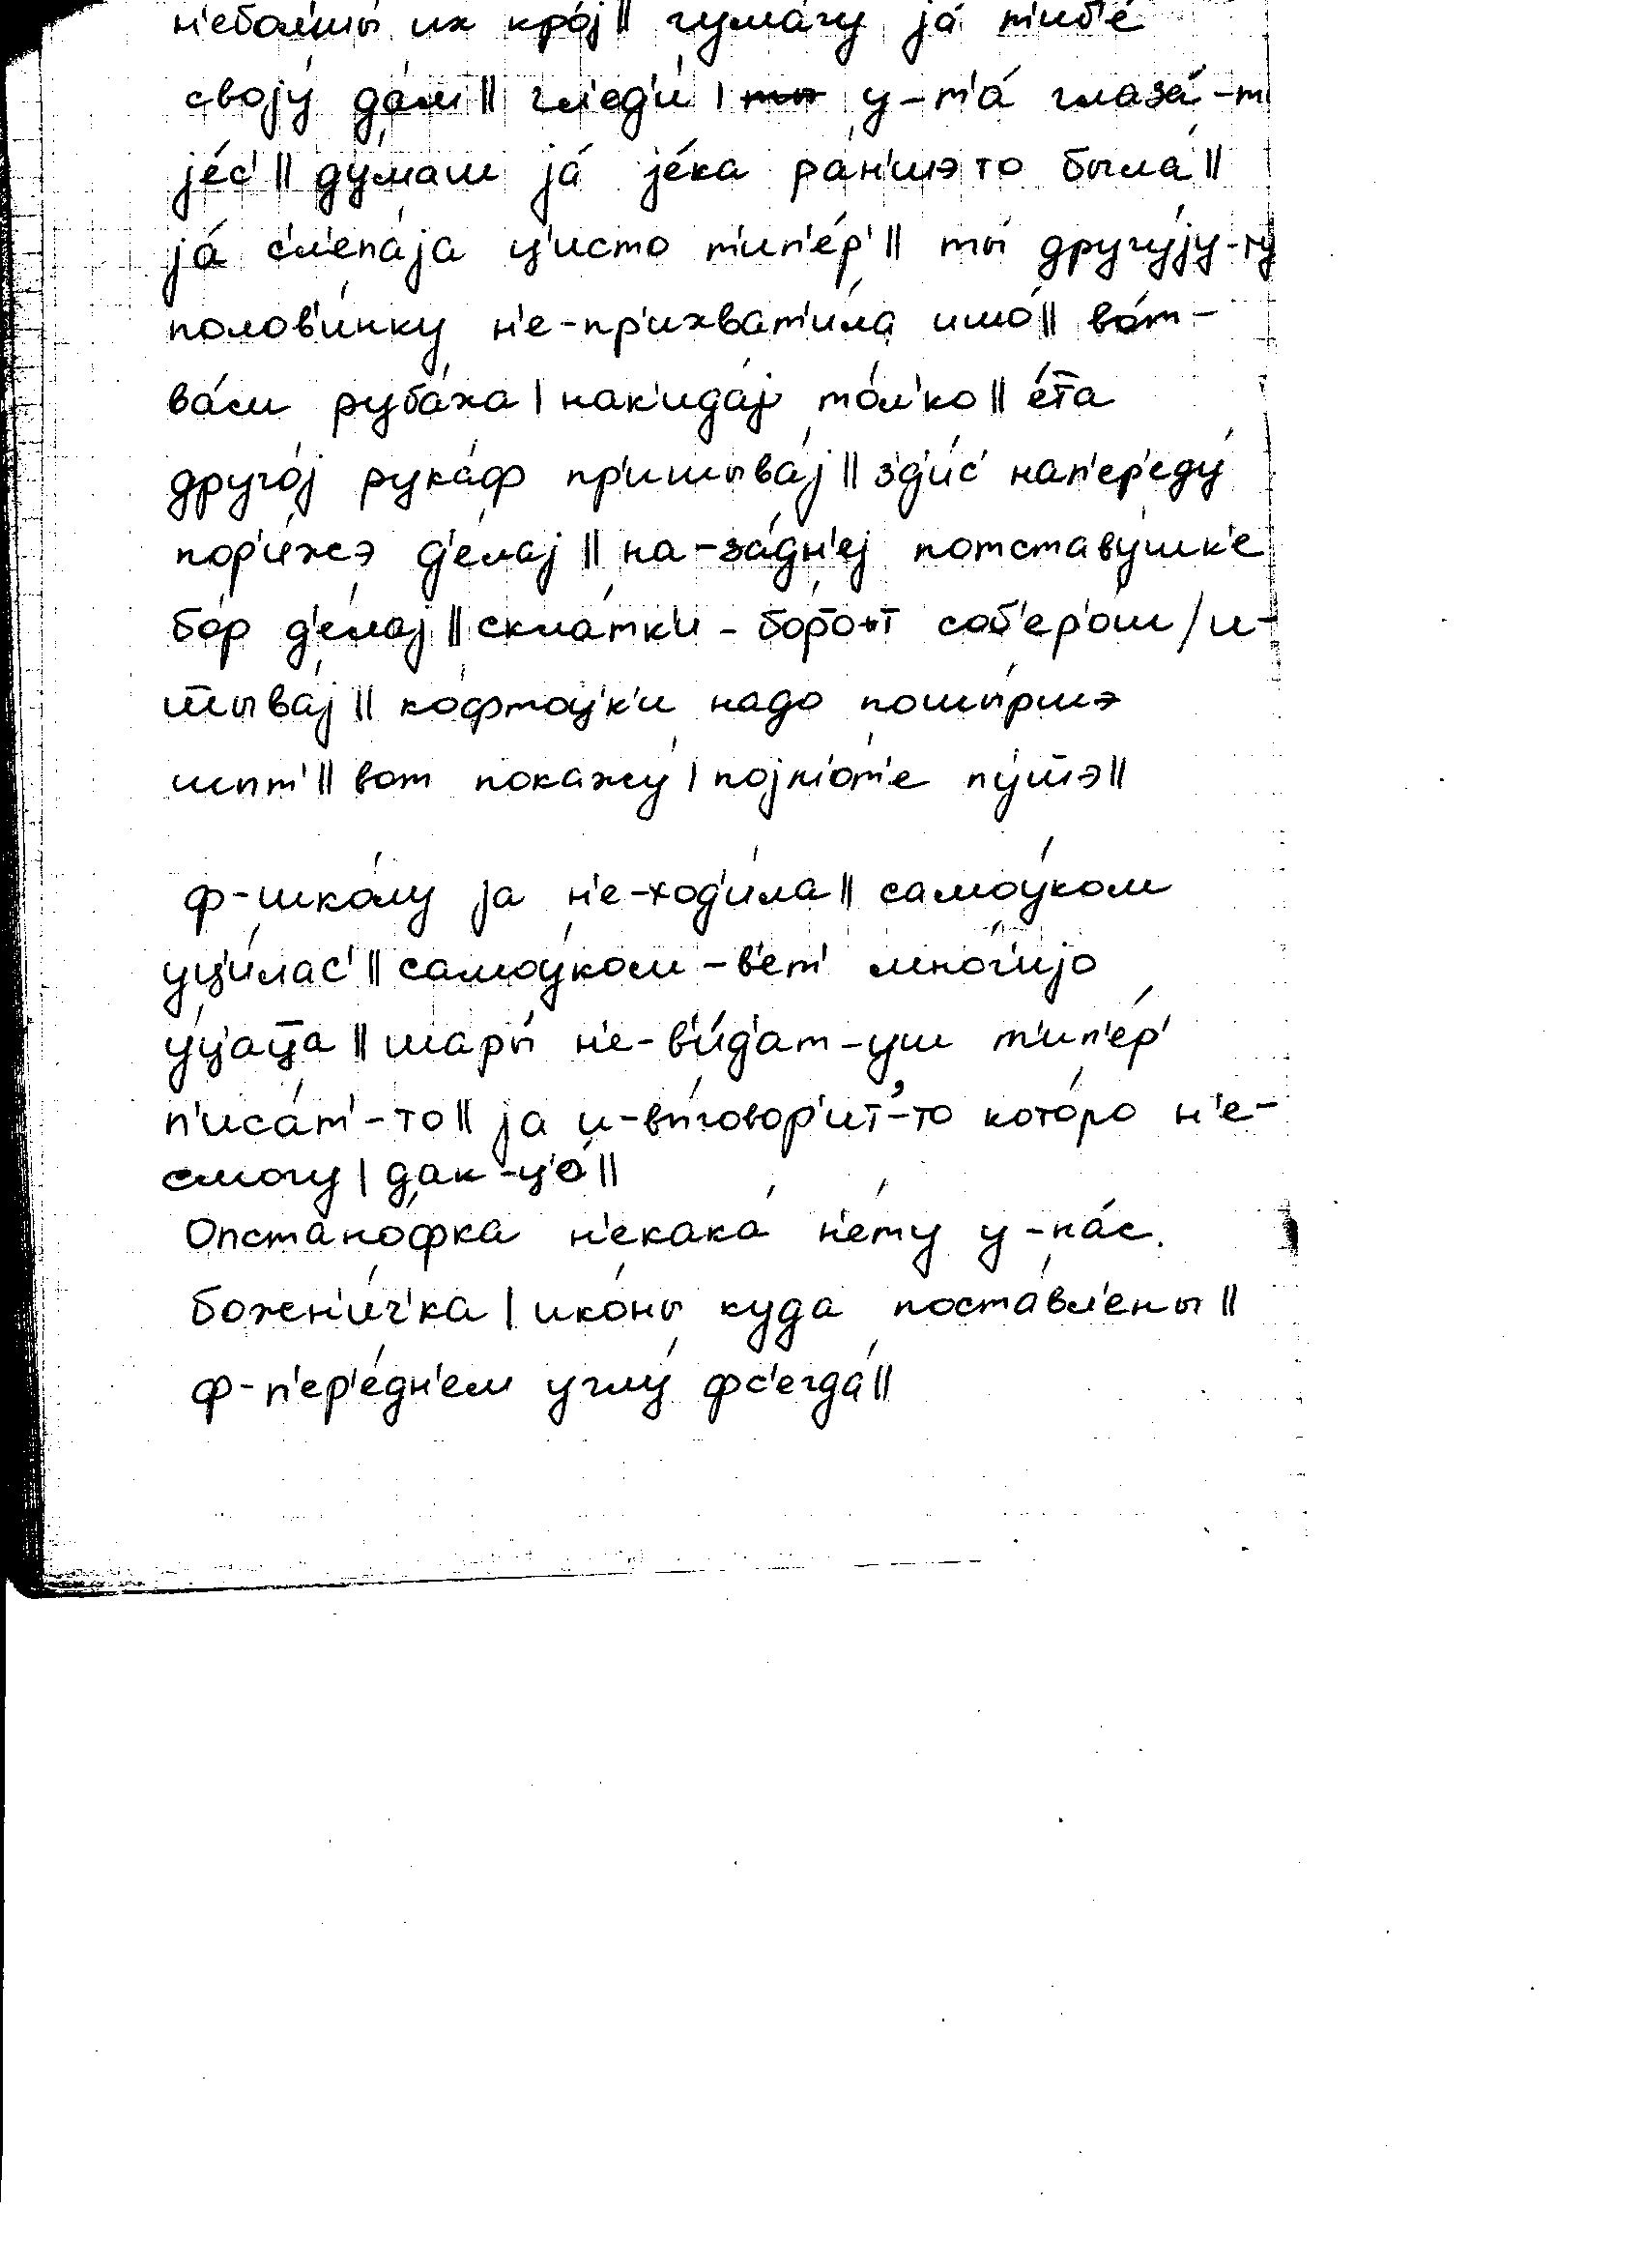 н'ебол'шы́ их кро́j || гума́гу jа́ т'иб'е́
своjу́ да́м || гл'ед'и́ | у-т'а́ глаза́-т
jе́с' || ду́маш jа́ jе́ка ра́н'шэто была́ ||
jа́ с'л'епа́jа ц'исто т'ип'е́р' || ты́ другу́jу-ту
полов'и́нку н'е-пр'ихват'и́ла ишо́ || во́т-
ва́м руба́ха | нак'ида́j то́л'ко || е́т̅а
друго́j рука́ф пр'ишыва́j || з'д'и́с' нап'ер'еду́
пор'и́жэ д'е́лаj || на-за́дн'еj потставу́шк'е
бо́р д'е́лаj || скла́тк'и - соб'ер'о́ш / и-
ш̅ыва́j || ко́фтоц'к'и надо пошы́ршэ
шыт' || вот покажу́ | поjм'о́т'е пу́ш̅э ||
ф-шко́лу jа н'е-ход'и́ла || самоу́ком
уц'и́лас' || самоу́ком-в'ет' мно́г'иjо
у́ц'ац̅а || шары́ н'е-в'и́д'ат-уш т'ип'е́р'
п'иса́т'-то || jа и-вы́говор'ит'-то кото́ро н'е-
смогу | дак-ц'о́ ||
Опстано́фка н'екака́ н'е́ту у-на́с.
божн'и́ч'ка | ико́ны куда поста́вл'ены ||
ф-п'ер'е́дн'ем углу́ фс'егда́ ||